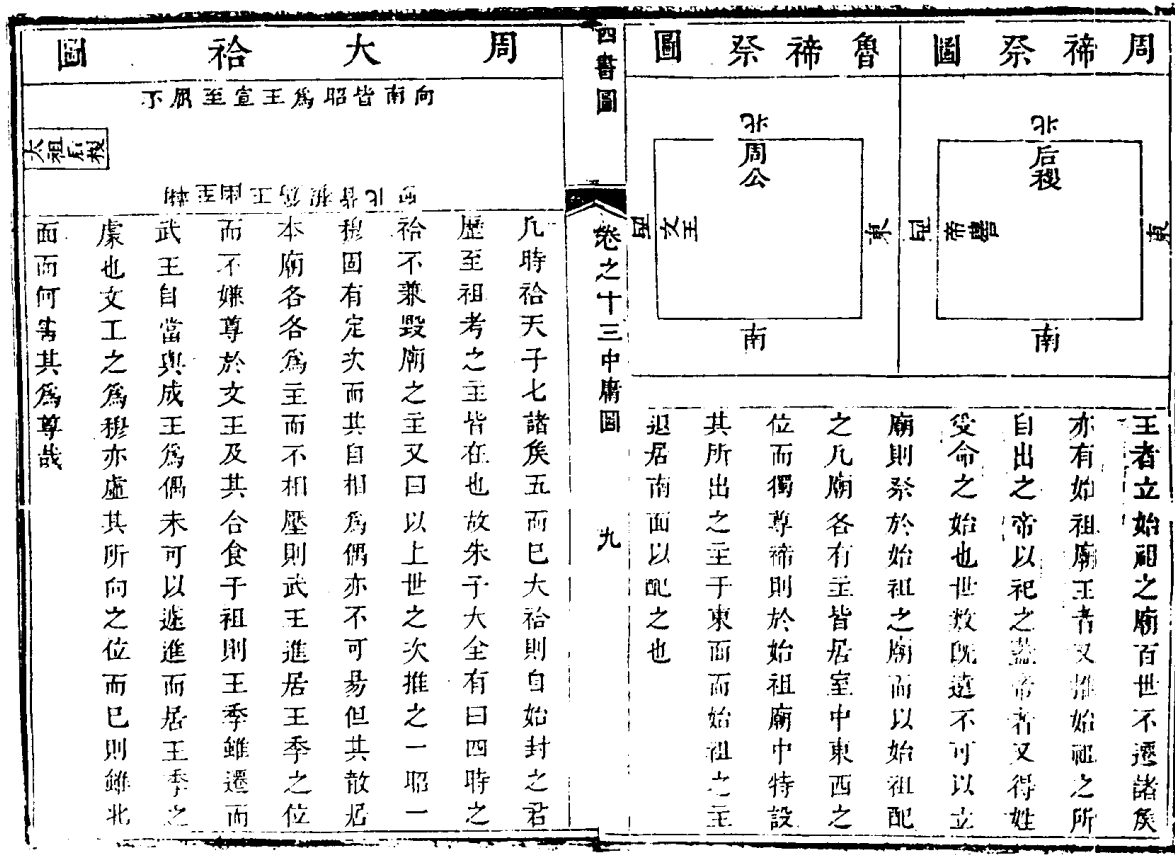 周禘祭圖
北
后稷
東
帝嚳
西
南
魯禘祭圖
北
周公
東
文王
西
南
王者立始祖之廟百世不遷諸矦
亦有始祖廟王者又推始祖之所
自出之帝以祀之蓋帝者又得姓
受命之始也世数旣遠不可以立
廟則祭於始祖之廟而以始祖配
之凡廟各有主皆居室中東西之
位而獨尊禘則於始祖廟中特設
其所出之主于東面而始祖之主
退居南面以配之也
四書圖
卷之十三中庸圖
九
周大祫圖
向南皆昭爲王宣至窋不
太祖后稷
向北皆穆爲王至
凡時祫天子七諸矦五而已大祫則自始封之君
歷至祖考之主皆在也故朱子大全有曰四時之
祫不兼毀廟之主又曰以上世之次推之一昭一
穆固有定次而其自相爲偶亦不可昜但其散居
本廟各各爲主而不相壓則武王進居王季之位
而不嫌尊於文王及其合食于祖則王季雖遷而
武王自當與成王爲偶未可以遽進而居王季之
處也文王之爲穆亦虛其所向之位而已則雖北
面而何害其爲尊哉